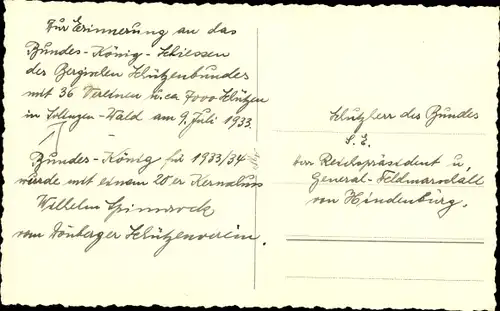 Zur Erinnerung an das
Bundes-König-Schiessen
des Bergischen Schützenbundes
mit 36 Vereinen u. ca 7000 Schützen
in Solingen-Wald am 9. Juli 1933.
Bundes-König für 1933/34
wurde mit einem 20er Kernschuss
Wilhelm
vom Dönberger Schützenverein.
Schutzherr des Bundes
S. E.
der Reichspräsident u.
General-Feldmarschall
von Hindenburg.